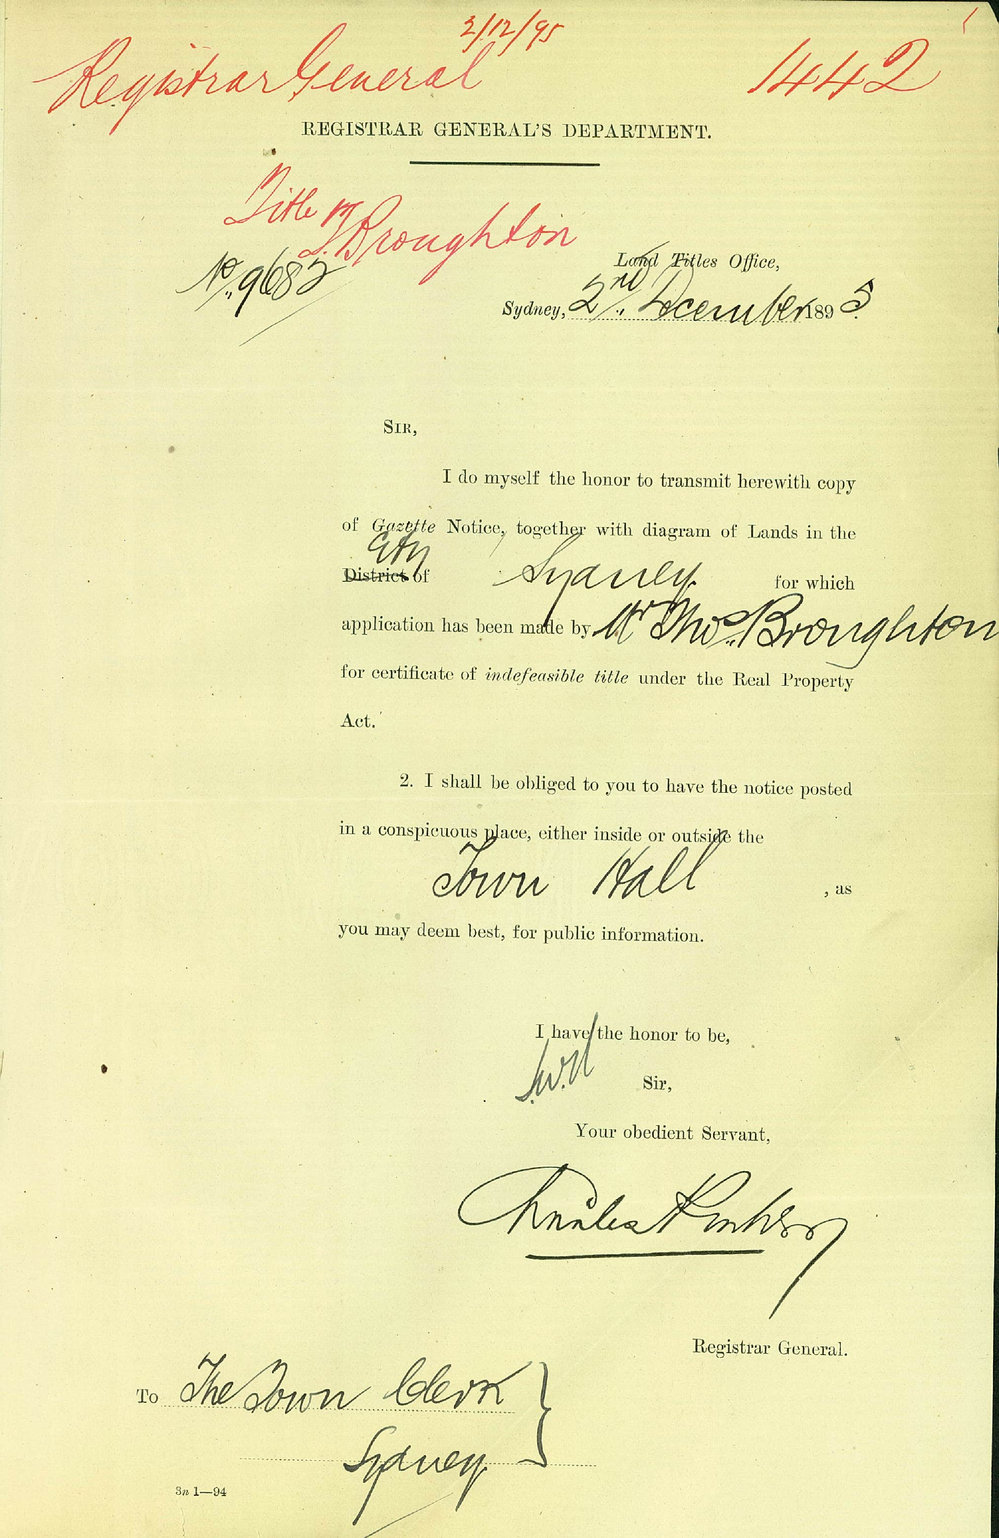 2/12/95
Registrar General
1442
REGISTRAR GENERAL'S DEPARTMENT.
Title
T. Broughton
No. 9682
Land Titles Office,
Sydney, 2nd December 1895.
SIR,
I do myself the honor to transmit herewith copy
of Gazette Notice, together with diagram of Lands in the
City
District of Sydney. for which
application has been made by Mr Thos. Broughton
for certificate of indefeasible title under the Real Property
Act.
2. I shall be obliged to you to have the notice posted
in a conspicuous place, either inside or outside the
Town Hall , as
you may deem best, for public information.
I have the honor to be,
Sir,
Your obedient Servant,
Charles
Registrar General.
To The Town Clerk
Sydney
3n 1—94